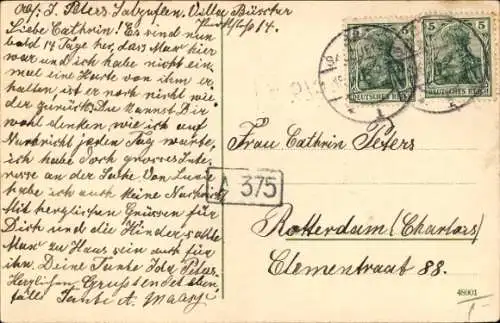 Abs: J. Peters Salzuflen, Villa
14.
Liebe Cathrin! Es sind nun
bald 14 Tage her, das Max hier
war und ich habe nicht ein
mal eine Karte von ihm er
halten, ist er noch nicht wie
der zurück? Du kannst Dir
wohl denken, wie ich auf
Nachricht jeden Tag warte,
ich habe doch grosses Inte,
resse an der Sache. Von
habe ich auch keine Nachricht
Mit herzlichen Grüssen für
Dich und die Kinder, sollte
Max zu Haus sein auch für
ihn. Deine Tante Ida Peters.
Herzlichen Gruss sendet eben
falls Tante A.
5
5
DEUTSCHES REICH
DEUTSCHES REICH
Frau Cathrin Peters
A 375
Rotterdam (Charlois)
Clementraat 88.
48901